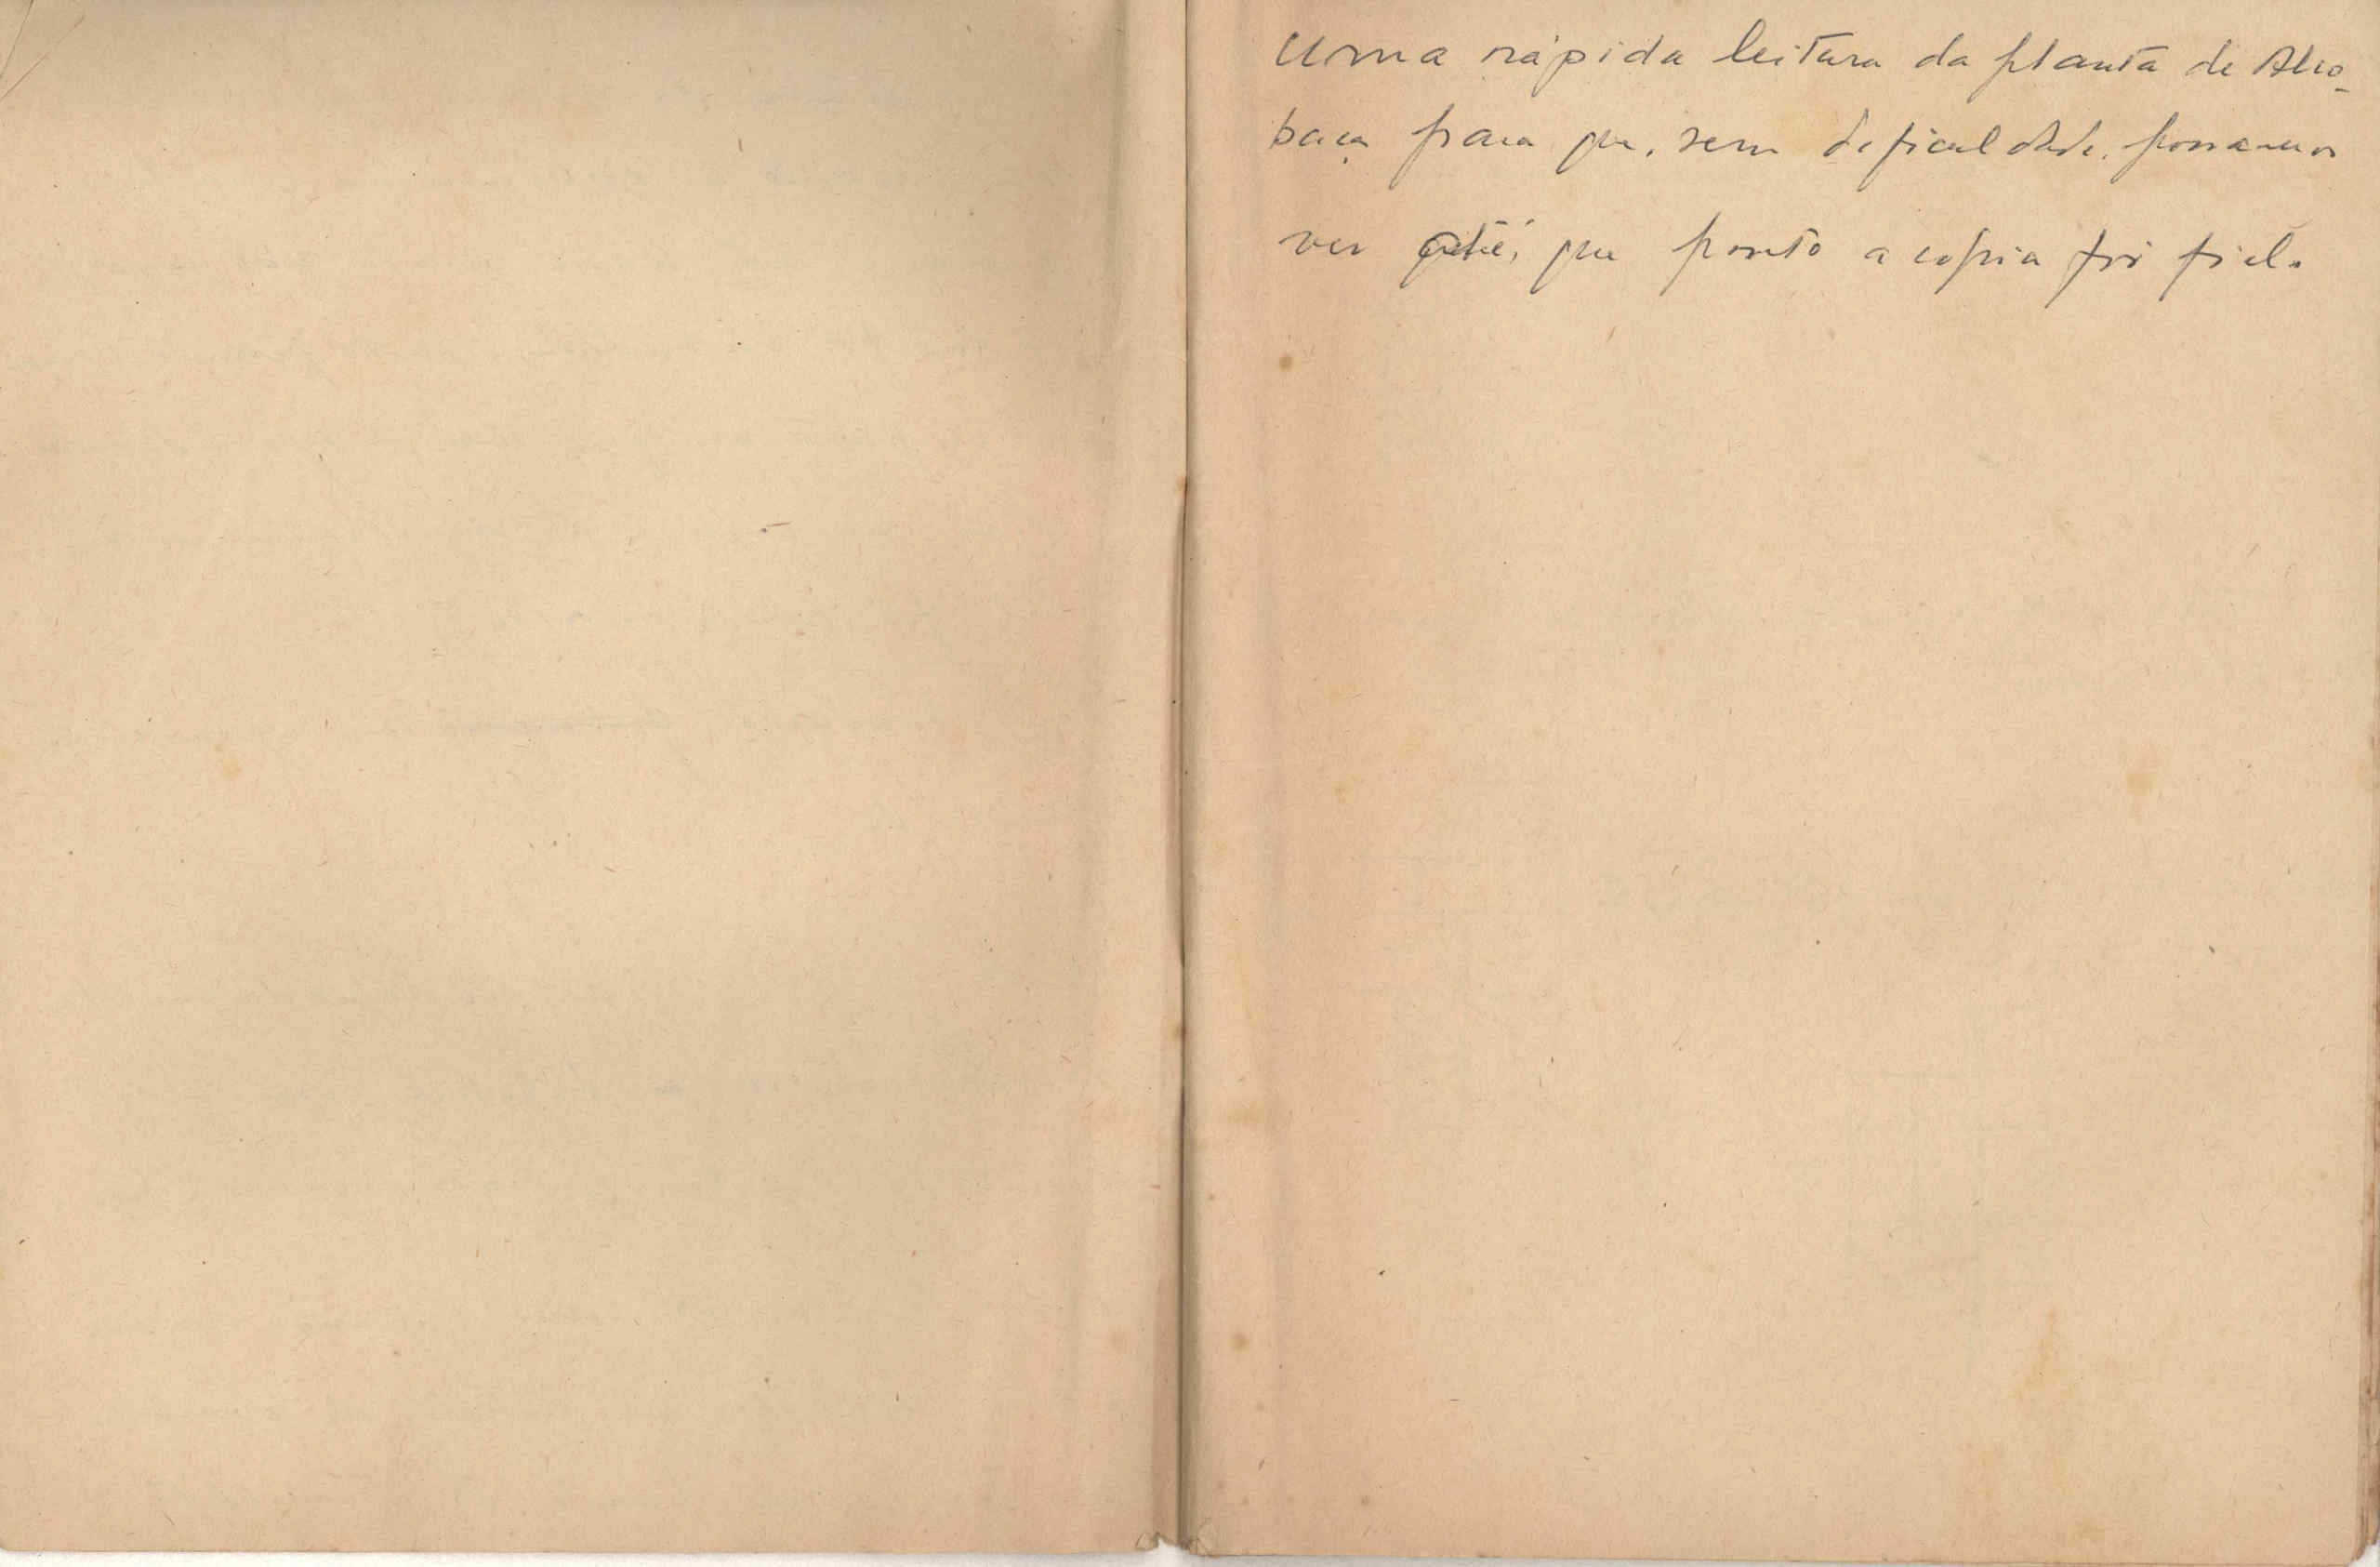 Uma rápida leitura da planta de Alco-
baça para que, sem deficuldade, possamos
ver até, que ponto a copia foi fiel.